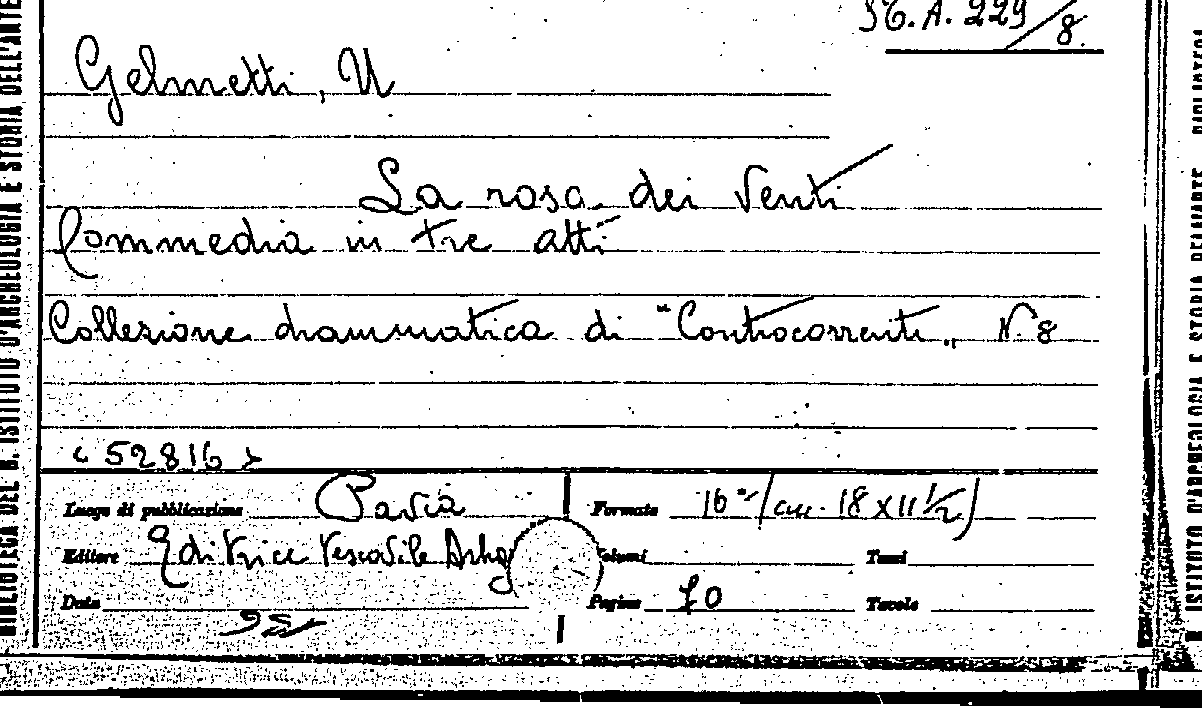 BIBLIOTECA DEL R. ISTITUTO D'ARCHEOLOGIA E STORIA DELL'ARTE
229/8.
Gelmetti, U
La rosa dei Venti
Commedia in tre atti
Collezione drammatica di "Controcorrente„ N. 8
< 52816 >
Luogo di pubblicazione Pavia Formato 16°/(cm. 18 x 11 ½)
Editore Editrice Vescovile Volumi Tomi
Data Pagine 70 Tavole
ISTITUTO D'ARCHEOLOGIA E STORIA DELL'ARTE BIBLIOTECA